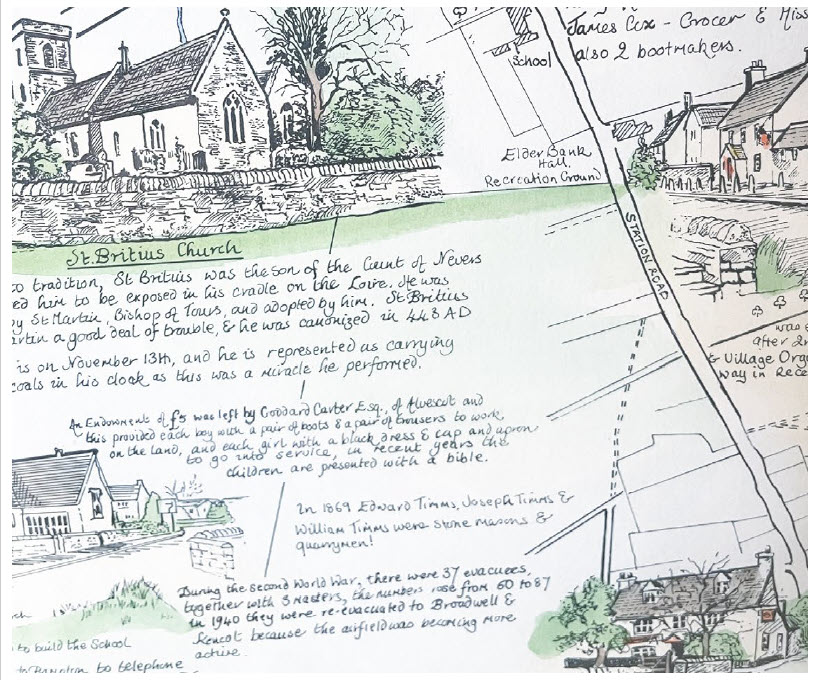 James Cox - Grocer & Miss
also 2 bootmakers.
School
Elder Bank
Hall.
Recreation Ground
STATION ROAD
St. Britius Church
to tradition, St Britius was the son of the Count of Nevers
ed him to be exposed in his cradle on the Loire. He was
by St Martin, Bishop of Tours, and adopted by him. St Britius
artin a good deal of trouble, & he was canonized in 443 AD
is on November 13th, and he is represented as carrying
coals in his cloak as this was a miracle he performed.
was
after 2n
& Village Orga
way in Rece
An Endowment of £5 was left by Goddard Carter Esq., of Alvescot and
this provided each boy with a pair of boots & a pair of trousers to work
on the land, and each girl with a black dress & cap and apron
to go into service, in recent years the
children are presented with a bible.
In 1869 Edward Timms, Joseph Timms &
William Timms were stone masons &
quarrymen!
During the Second World War, there were 37 evacuees,
together with 3 Masters, the numbers rose from 60 to 87
in 1940 they were re-evacuated to Broadwell &
Kencot because the airfield was becoming more
active.
rch
to build the School
to Bampton to telephone